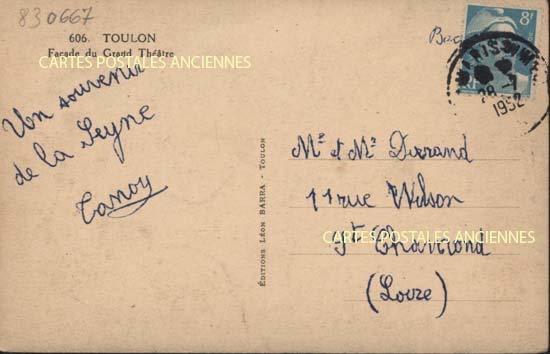 830667
606. TOULON
Façade du Grand Théâtre
CARTES POSTALES ANCIENNES
Un souvenir
de la Seyne
ÉDITIONS LÉON BARRA - TOULON
8F
28-7
1952
Mr et Me Durand
11 rue Wilson
St Chamond
CARTES POSTALES ANCIENNES
(Loire)